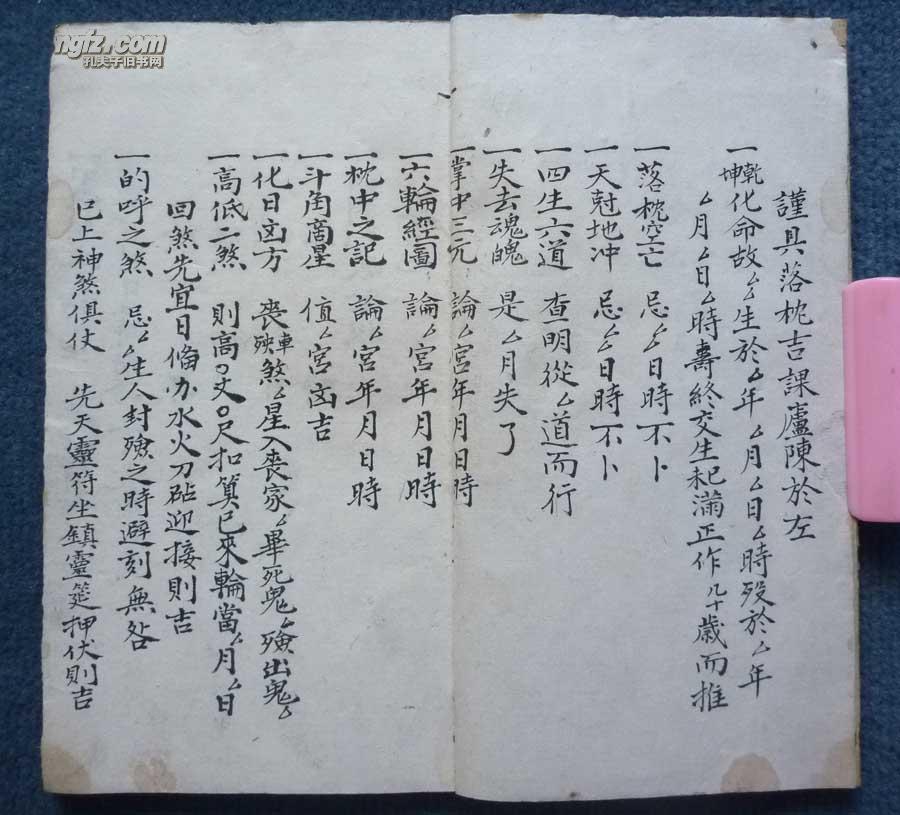 謹具落枕吉課廬陳於左
一乾坤化命故厶厶生於厶年厶月厶日厶時殁於厶年
厶月厶日厶時壽終交生杞滿正作几十歲而推
一落枕空亡 忌厶厶日時不卜
一天尅地冲 忌厶厶日時不卜
一四生六道 查明從厶道而行
一失去魂魄 是厶月失了
一掌中三元 論厶宮年月日時
一六輪經圖 論厶宮年月日時
一枕中之記 論厶宮年月日時
一斗角商星 值厶宮凶吉
一化日凶方 喪車殃煞厶星入喪家厶畢死鬼厶殮出鬼厶
一高低二煞 則高〇丈〇尺扣算已來輪當厶月厶日
回煞先宜日俻办水火刀砧迎接則吉
一的呼之煞 忌厶厶生人封殮之時避刻無咎
已上神煞俱仗 先天靈符坐鎮靈筵押伏則吉
孔夫子旧书网